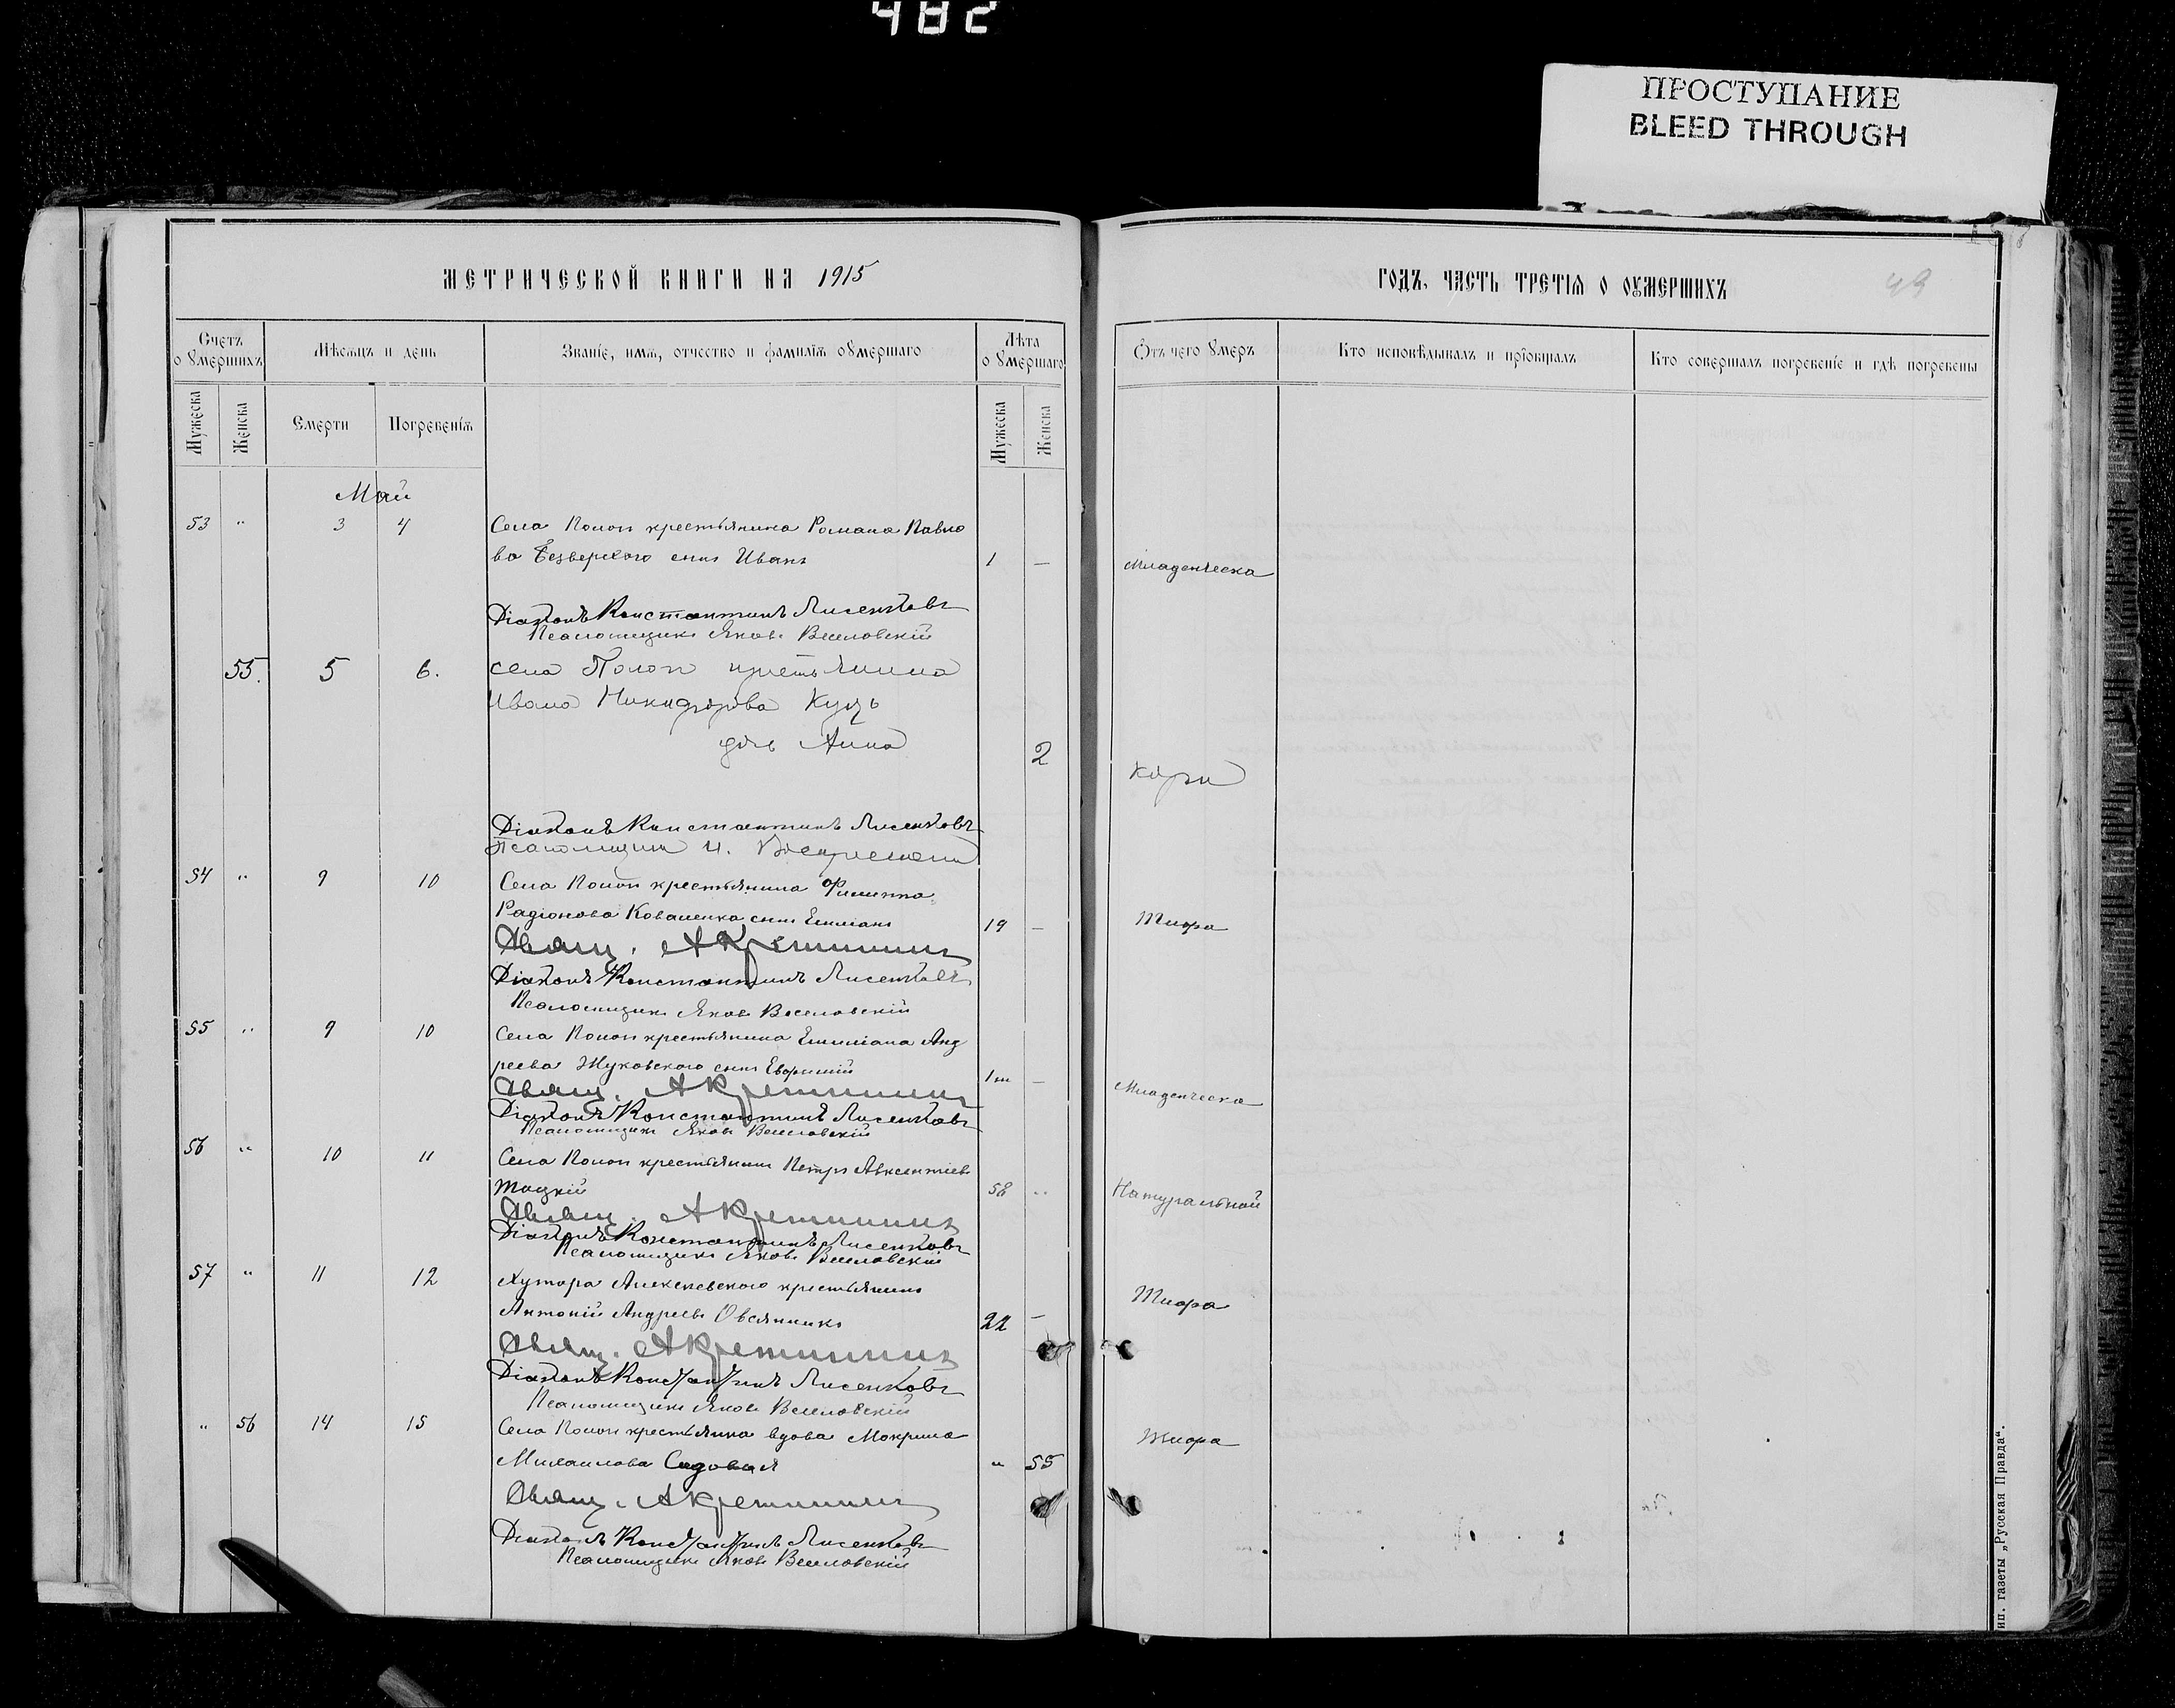 482
ПРОСТУПАНИЕ
BLEED THROUGH
МЕТРИЧЕСКОЙ КНИГИ НА 1915
ГОДЪ, ЧАСТЬ ТРЕТІѦ О ОУМЕРШИХЪ
49
Счетъ о Умершихъ
Мѣсѧцъ и день
Званіе, имѧ, отчество и фамилїѧ оумершаго
Лѣта о Умершаго
Ѿтъ чего Умеръ
Кто исповѣдывалъ и прїобщалъ
Кто совершалъ погребенїе и гдѣ погребены
Мужеска
Женска
Смерти
Погребенїѧ
Мужеска
Женска
Май
53 " 3 4 Села Попоп крестьянина Романа Павло
ва Безверхого сынъ Иванъ 1 — Младенческа
Діаконъ Константинъ Лисенковъ
Псаломщикъ Яковъ Веселовскій
55. 5 6. села Попоп крестьянина
Ивана Никифорова Кузь
дочь Анна 2 Кори
Діаконъ Константинъ Лисенковъ
Псаломщикъ И.
54 " 9 10 Села Попоп крестьянина Филиппа
Радіонова Коваленка сынъ Емиліанъ 19 — Тифа
Свящ. А Крептининъ
Діаконъ Константинъ Лисенковъ
Псаломщикъ Яковъ Веселовскій
55 " 9 10 Села Попоп крестьянина Емиліана Анд
реева Жуковского сынъ Евфимій 1 м — Младенческа
Свящ. А Крептининъ
Діаконъ Константинъ Лисенковъ
Псаломщикъ Яковъ Веселовскій
56 " 10 11 Села Попоп крестьянинъ Петръ Авксентіевъ
Тоцкій 58 " Натуральной
Свящ. А Крептининъ
Діаконъ Константинъ Лисенковъ
Псаломщикъ Яковъ Веселовскій
57 " 11 12 Хутора Алексеевского крестьянинъ
Антоній Андреевъ Овсянникъ 22 — Тифа
Свящ. А Крептининъ
Діаконъ Константинъ Лисенковъ
Псаломщикъ Яковъ Веселовскій
" 56 14 15 Села Попоп крестьянка вдова Мокрина
Михаилова Садовая " 55 Тифа
Свящ. А Крептининъ
Діаконъ Константинъ Лисенковъ
Псаломщикъ Яковъ Веселовскій
ип. газеты „Русская Правда“.